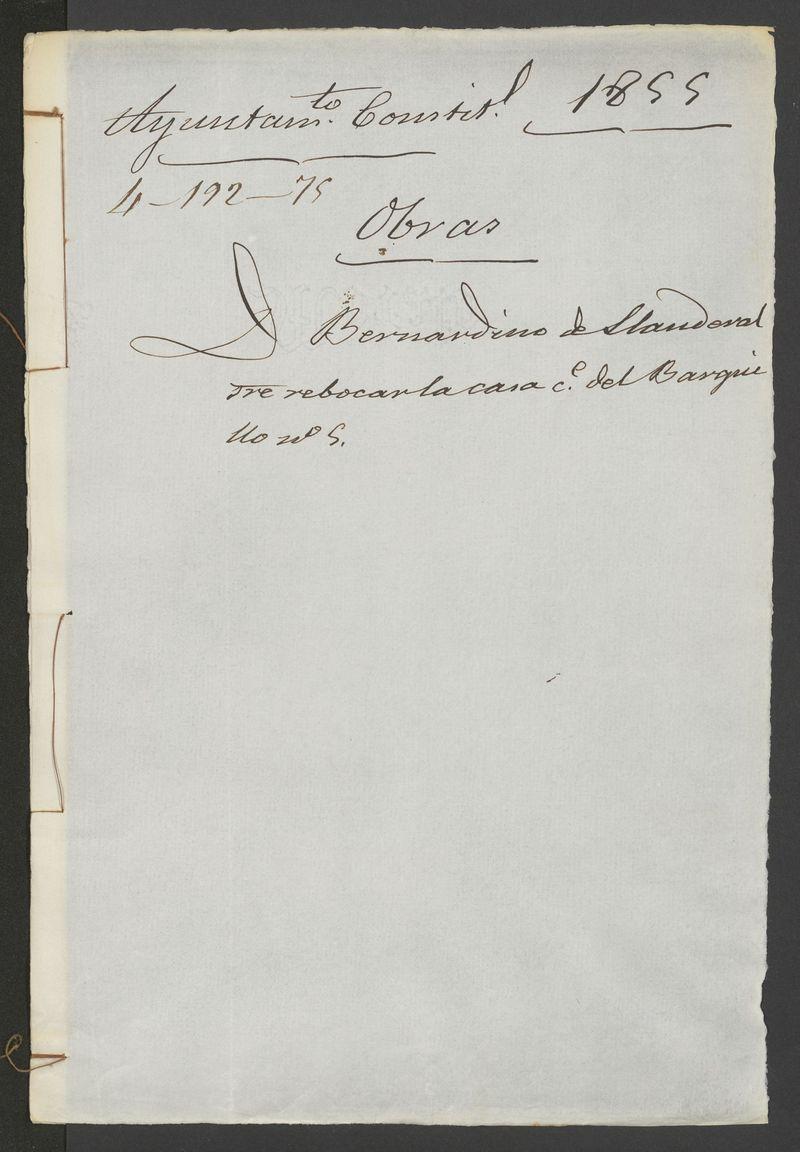 Ayuntam.to Constit.l 1855
4-192-75
Obras
D Bernardino de Llanderal
sre rebocar la casa c.e del Barqui
llo no 5.